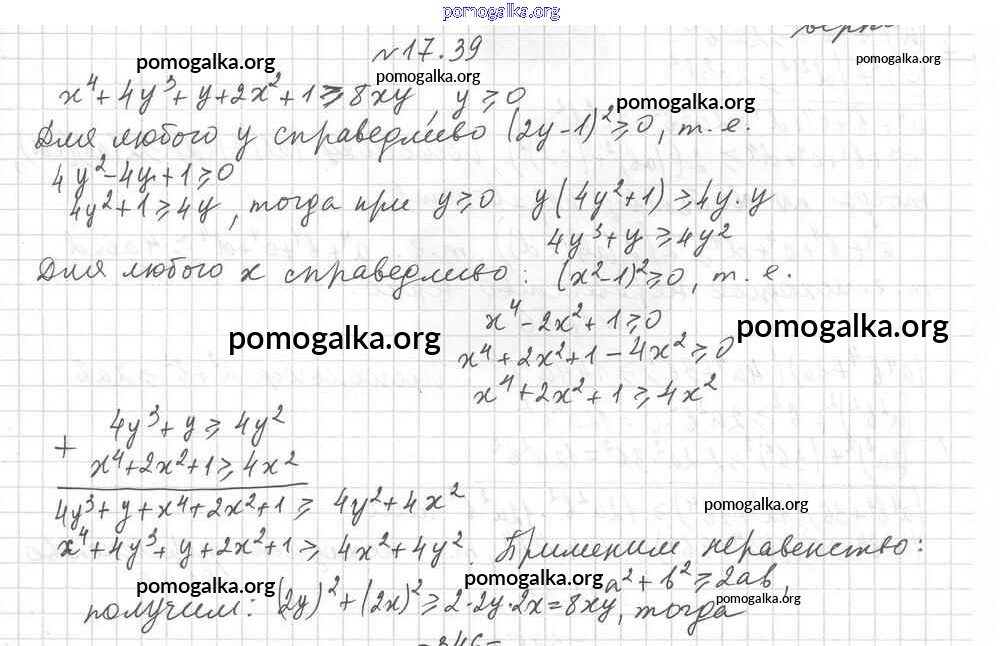 pomogalka.org
N17.39
pomogalka.org
pomogalka.org
pomogalka.org
x⁴+4y³+y+2x²+1≥8xy, y≥0
pomogalka.org
Для любого y справедливо (2y-1)²≥0, т.е.
4y²-4y+1≥0
4y²+1≥4y, тогда при y≥0 y(4y²+1)≥4y·y
4y³+y≥4y²
Для любого x справедливо: (x²-1)²≥0, т.е.
x⁴-2x²+1≥0
pomogalka.org
pomogalka.org
x⁴+2x²+1-4x²≥0
x⁴+2x²+1≥4x²
4y³+y≥4y²
+
x⁴+2x²+1≥4x²
4y³+y+x⁴+2x²+1≥4y²+4x²
pomogalka.org
x⁴+4y³+y+2x²+1≥4x²+4y². Применим неравенство:
pomogalka.org
pomogalka.org
a²+b²≥2ab,
pomogalka.org
получим: (2y)²+(2x)²≥2·2y·2x=8xy, тогда